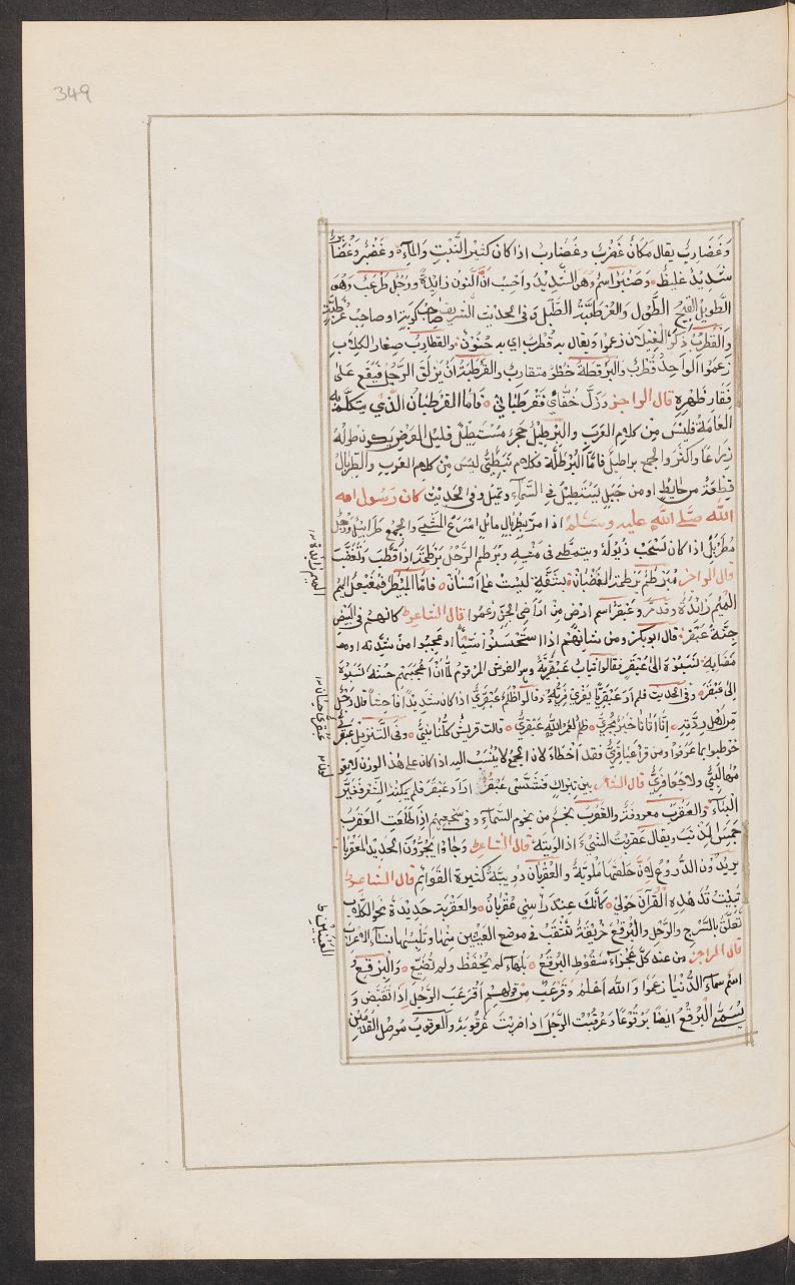 349
وَغُضَارِبٌ يقال مكَانٌ غَضْرَبٌ وغُضَارِبٌ اذا كان كثيرالنَّبتِ وَالمآءِ وغَضْبَرٌ وَغُضَابِرٌ
شَدِيدٌ غليظ وَضَنْبَرٌ اسم وهو الشَّدِيدُ واَحْسِبُ انّ النون زايدةٌ ورَجُلٌ طُرْعَبٌ وهو
الطَّويلُ القبيح الطُّول والعُرْطَبَةُ الطَّبل وفى الحديث الشريف صَاحبُ كوبةٍ او صاحب عَرْطبةٍ
والقُطْرُبُ ذَكَرُ الغِيْلَان زعموا ويقال به قُطْرُبٌ اي به جُنُونٌ والقطارِبُ صغار الكِلَابِ
زَعَمُوا الواحِدُ قُطْرُبٌ والبَرْقَطَةُ خَطْوٌ متقارب والقَرْطَبَةُ اَنْ يَزْلَقَ الرَّجُل فيَقَع عَلى
فِقَارِ ظَهْرِهِ قال الراجز وَزَلَّ خُفَّايَ فقَرْطَبَانِي فَامّا القَرْطَبُان الّذي يتكلّم به
العَامّةُ فليسَ مِن كلام العَرَبِ والبِرْطِيْلُ حَجَرٌ مُسْتطِيلٌ قليل العَرْضِ يكون طولهُ
ذِرَاعًا وَاكثرَ والجمع بَرَاطِيلُ فامّا البُرْطُلَّةُ فكلام نَبَطِىٌّ ليسَ مِن كلام العرب والطِّربالُ
قِطعَةٌ مِن حايطٍ او من جَبَلٍ يَسْتَطِيلُ فى السَّمآءِ وتميل وفى الحَديث كان رَسُول الله
صَلّى اللّه عليه وسَلّم اذا مرّ بطِرْبَالٍ مائلٍ اَسْرَعَ المَشْيَ والجمع طَرَابِيْلُ ورَجُلٌ
مُطَرْبِلٌ اذا كان يَسْحَبُ ذُيُولَهُ ويتمطّى فى مَشيه وبَرْطَمَ الرَّجُل بَرْطَمَةً اذا قَطَّبَ وتَغَضَّبَ
قال الراجز مُبَرْطِمٌ بَرْطَمَةَ الغَضْبَانْ بشَفَةٍ ليستْ عَلى اَسْنَانْ فامّا المُبَيْطِرُ فمُفَيْعِلٌ
الميم زَائدةٌ وقد مرّ وعَبْقَرٌ اسم ارض مِن اراضى الجِنّ زعموا قال الشاعر كانهم فى البَيضِ
جِنَّةُ عَبْقَرٍ قال ابوبكر ومن شانهم اذا اسْتَحْسَنُوا شَيْئًا او عَجِبُوا من شِدّته او من
مَضَائِهِ نَسَبُوْهُ الىٰ عَبْقَرٍ فقالوا ثيابٌ عَبْقَرِيّةٌ وهو الفرش المرقوم لمّا اَنْ اَعْجَبَهم حُسْنُهُ نَسَبُوْهُ
الىٰ عَبْقَرَ وفى الحديث فلم اَرَ عَبْقَرِيًّا يَفْرِيْ فَرِيَّهُ وقالوا ظُلْمٌ عَبْقَرِىٌّ اذا كان شَدِيدًا فاحِشًا قال رَجُلٌ
مِن اَهل رِدّته اِنّا اَتَانَا خَبَرٌ بَحْرِىُّ ظلم لعَمْرُ اللّه عَبْقَرِىُّ قالت قريش كلّنا نبىُّ وفى التنزيل عَبْقَرِىّ
خوطبوا بما عَرَفُوا ومن قرأ عَبَاقِرِىٌّ فقد اخطأ لان الجمع لا يُنْسَبُ اليه اذا كان على هذا الوزن لا يقولون
مهالبىٌّ ولا جَعَافِرىٌّ قال الشاعر بين تِبْرَاكٍ فشَسَّىْ عَبْقُرٍ اراد عَبْقَر فلم يمكنه الشّعر فغيّر
البنآءَ والعَقْرَبُ معروفةٌ والعَقْرَبُ نجمٌ من نجوم السَّمآءِ وفى سَجعهم اِذَا طَلَعتِ العَقْرَبُ
جَمَسَ المِذْنَبُ ويقال عَقْرَبْتُ الشَّىْءَ اذا لَوَيتَهُ قال الشاعر وجَاؤا يَجُرُّوْنَ الحَديدَ المُعَقْرَبَا
يُريدُوْن الدُّرُوْعَ لِاَنَّ حَلَقَها مَلْوِيّةٌ والعُقْرُبَان دُوَيبّةٌ كثيرة القَوَائم قال الشاعر
تَبيْتُ تُدَهْدِهُ القُرْآنَ حَوْلِيْ كَأنّكَ عِندَ رَأسِى عُقْرُبَانُ والعَقْرَبَة حَديدةٌ نحو الكُلَّابِ
تُعَلَّقُ بالسَّرْجِ والرَّحْلِ والبُرقُعُ خُرَيْقَةٌ تُثْقَبُ فى موضع العَيْنَين منها وتَلْبَسُها نسآء الاعراب
قال الراجز من عند كلّ عَجْزَآءَ سَقُوْطِ البُرْقُعِ بَلْهَآءَ لم تُحْفَظْ ولم تُضَيَّعِ والبِرْقِعُ
اسم سمآءِ الدُّنيَا زعموا وَاللّه اعلم وقَرْعَبٌ مِن قولهم اِقْرَعَبَّ الرَّجُل اِذَا تَقَبَّضَ وَ
يُسَمّى البُرْقُعُ ايضًا بُرْقُوعًا وَعَرْقَبْتُ الرَّجُل اذا ضربْتَ عُرْقُوبَهُ والعرقوبُ مَوصِل القَدَمَيْنِ
الميم زائدة ١٢
عبقرى حسان ١٢
العينين ط